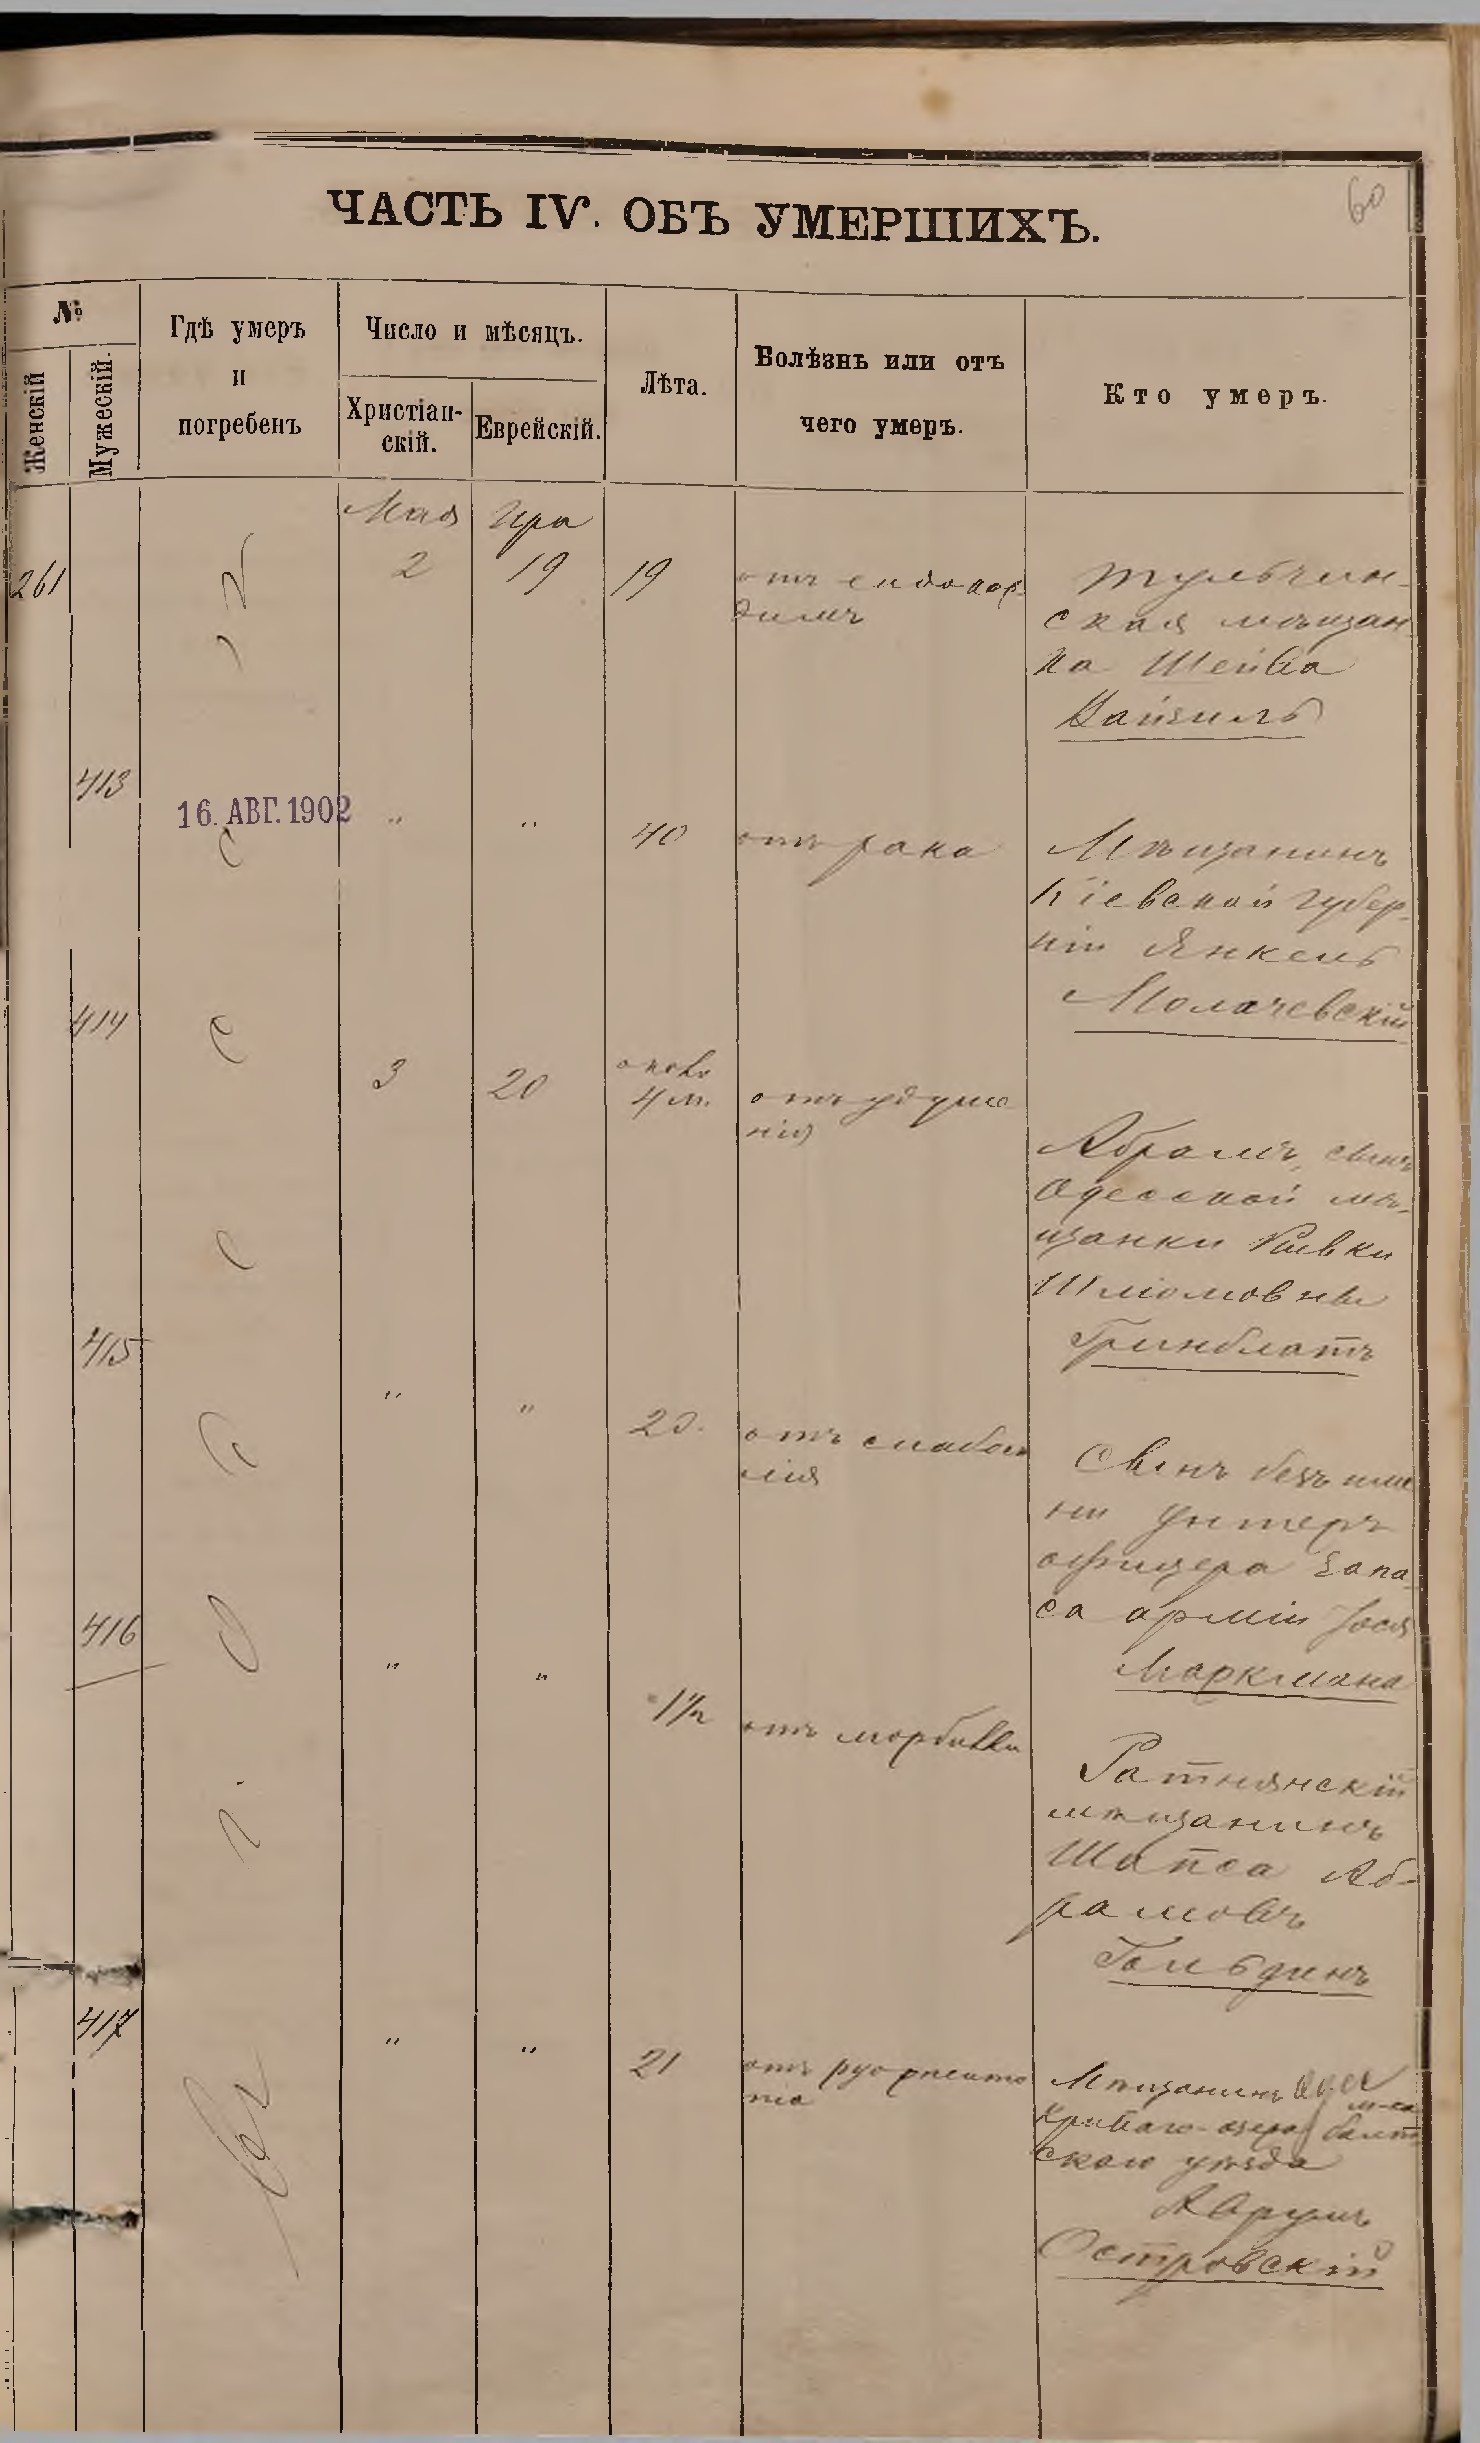 60
ЧАСТЬ IV. ОБЪ УМЕРШИХЪ.
№
Женскій
Мужескій.
Гдѣ умеръ
и
погребенъ
Число и мѣсяцъ.
Христіан-
скій.
Еврейскій.
Лѣта.
Болѣзнь или отъ
чего умеръ.
Кто умеръ.
Мая Ира
261
2 19 19
отъ ендокар-
дитъ
Тульчин-
ская мѣщан
ка Шейва
Вайзиль
413
16. АВГ. 1902
" "
40
отъ рака
Мѣщанинъ
Кіевской губер-
ніи Янкель
Молачевскій
414
3 20
около
4 м.
отъ удуше
нія
Абрамъ, сынъ
Одесской мѣ-
щанки Ривки
Шліомовны
Гринблатъ
415
" "
2 д.
отъ слабос
лія
Сынъ безъ име
ни унтеръ
офицера запа-
са арміи Іося
Маркмана
416
" "
1½
отъ морбилли
Ратнянскій
мѣщанинъ
Шапса Аб-
рамовъ
Гольдинъ
417
" "
21
отъ
Мѣщанинъ
м-ка
Криваго-озера Балт
скаго уѣзда
Аврумъ
Островскій